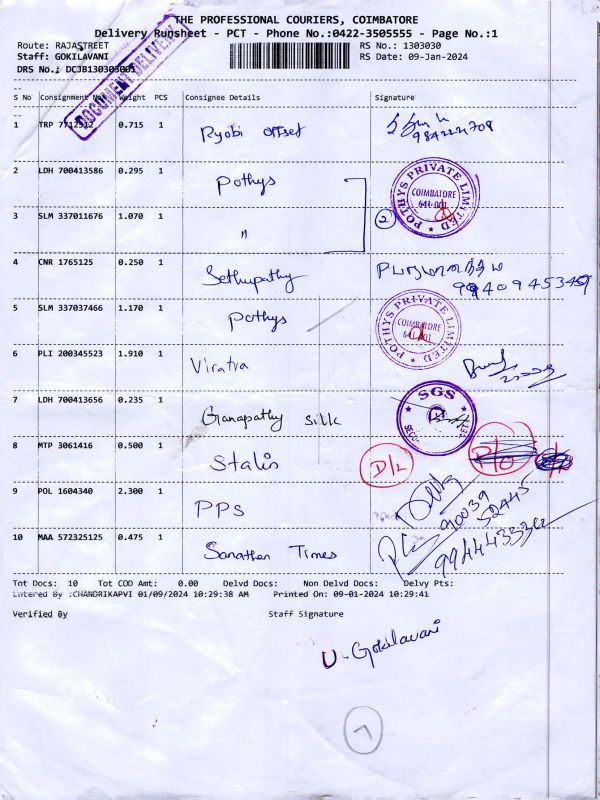 THE PROFESSIONAL COURIERS, COIMBATORE
Delivery Runsheet - PCT - Phone No.:0422-3505555 - Page No.:1
Route: RAJASTREET
RS No.: 1303030
Staff: GOKILAVANI
RS Date: 09-Jan-2024
DRS No.:
DOCUMENT DELIVERY
S No Consignment Weight PCS Consignee Details Signature
1 TRP 0.715 1 Ryobi offset
2 LDH 700413586 0.295 1 Pothys
POTHYS PRIVATE LIMITED
COIMBATORE
641 001
2
3 SLM 337011676 1.070 1 "
4 CNR 1765125 0.250 1 Sethupathy
5 SLM 337037466 1.170 1 Pothys
POTHYS PRIVATE LIMITED
COIMBATORE
641 001
6 PLI 200345523 1.910 1 Viratra
7 LDH 700413656 0.235 1 Ganapathy silk
SGS
8 MTP 3061416 0.500 1 Stalis
D/L
9 POL 1604340 2.300 1 PPS
90039
52445
10 MAA 572325125 0.475 1 Sanathan Times
Tot Docs: 10 Tot COD Amt: 0.00 Delvd Docs: Non Delvd Docs: Delvy Pts:
Entered By :CHANDRIKAPVI 01/09/2024 10:29:38 AM Printed On: 09-01-2024 10:29:41
Verified By Staff Signature
U. Gokilavani
7